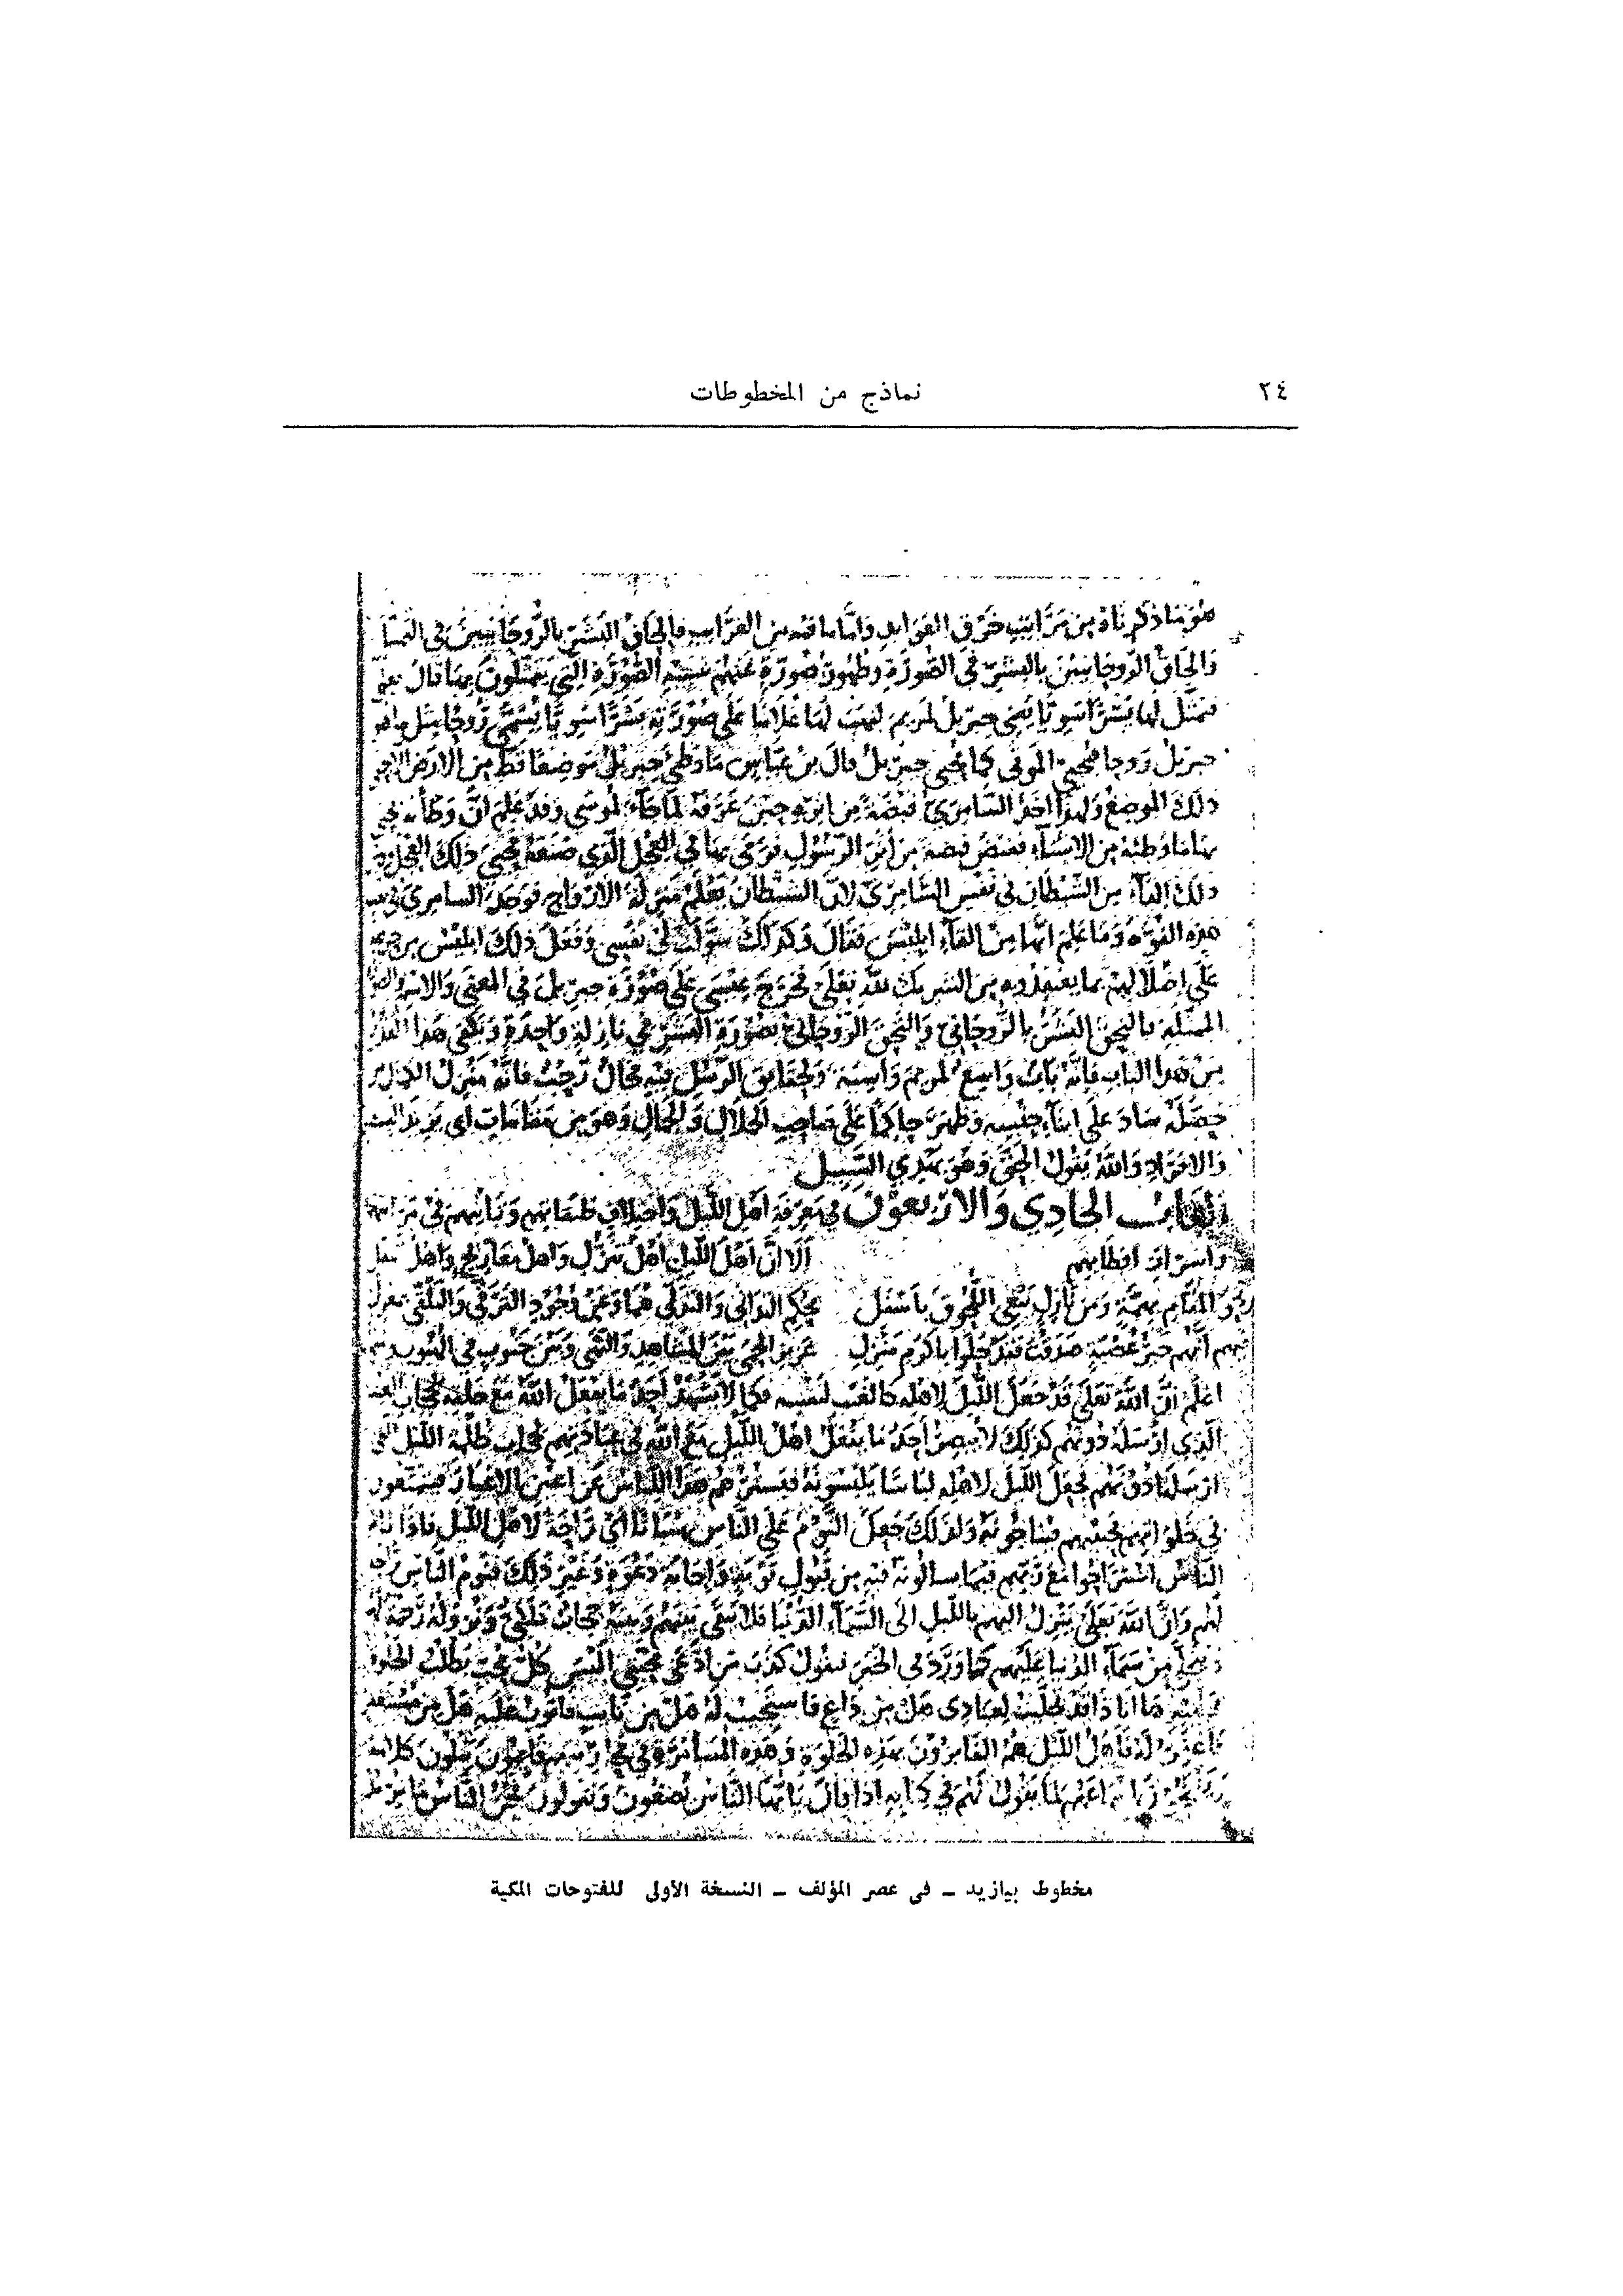 ٢٤
نماذج من المخطوطات
هو ما ذكرناه من مراتب خرق العوايد واما ما فيه من الغرايب فالحاق البشر بالروحانيين في التمثل
والحاق الروحانيين بالبشر في الصورة وظهور صورة عنهم الصورة التي يتمثلون بها قال
فتمثل لها بشرا سويا يعني جبريل لمريم ليهب لها غلاما على صورته بشرا سويا يسمى روحا مثل ما هو
جبريل روحا فيحيي الموتى كما يحيي جبريل قال بن عباس ما وطئ جبريل موضعا قط من الارض الا
ذلك الموضع ولهذا اخذ السامري قبضة من اثره حين عرفه لما جاء لموسى وقد علم ان وطأته يحيى
بها ما وطئه من الاشياء فقبض قبضة من اثر الرسول فرمى بها في العجل الذي صنعه فحيي ذلك العجل وكان
ذلك القاء من الشيطان في نفس السامري لان الشيطان يعلم منزلة الارواح فوجد السامري في نفسه
هذه القوة وما علم انها من القاء ابليس فقال وكذلك سولت لي نفسي وفعل ذلك ابليس من حرصه
على اضلالهم بما يعتقدوه من الشريك لله تعلى فخرج عيسى على صورة جبريل في المعنى والاسم والصورة
الممثلة فالتحق البشر بالروحاني والتحق الروحاني بصورة البشر في نازلة واحدة ويكفي هذا القدر
من هذا الباب فانه باب واسع لمريم وآسية ولحقايق الرسل فيه مجال رحب فانه منزل الكمال من
حصله ساد على ابناء جنسه وظهر حاكما على صاحب الجلال والجمال وهو من مقامات ابي يزيد البسطامي
والافراد والله يقول الحق وهو يهدي السبيل
الباب الحادي والاربعون في معرفة اهل الليل واختلاف طبقاتهم وتباينهم في مراتبهم
واسرار اقطابهم الا ان اهل الليل اهل تنزل واهل معاريج واهل تنقل
نحو المقام بهمة ومن نازل يبغي اللحوق باسفل بحكم التداني والتدلي هما وعن وجود الترقي والتلقي
انهم خير عصبة صدقت قد حلوا باكرم منزل
اعلم ان الله تعلى قد جعل الليل لاهله كالغيب لنفسه فكما لا يشهد احد ما يفعل الله مع خلقه لحجاب الغيب
الذي ارسله دونهم كذلك لا يبصر احد ما يفعل اهل الليل مع الله في عبادتهم لحجاب ظلمة الليل التي
ارسلها دونهم فجعل الليل لاهله لباسا يلبسونه فيسترهم هذا اللباس عن اعين الاغيار فيتمتعون
في خلواتهم بحبيبهم فيناجونه ولذلك جعل النوم على الناس سباتا اي راحة لاهل الليل فاذا نام
الناس استراحوا مع ربهم فيما يسالونه فيه من قبول توبة واجابة دعوة وغير ذلك فنوم الناس راحة
لهم وان الله تعلى ينزل اليهم بالليل الى السماء الدنيا فلا يبقى بينهم وبينه حجاب فلكي ونزوله رحمة لهم
ويتجلى من سماء الدنيا عليهم كما ورد في الخبر فيقول كذب من ادعى محبتي اليس كل محب يطلب الخلوة
بحبيبه ها انا ذا قد تجليت لعبادي هل من داع فاستجيب له هل من تايب فاتوب عليه هل من مستغفر
فاغفر له فاهل الليل هم الفايزون بهذه الخلوة وهذه المسامرة في محاريبهم فاهلون يتلون كلامه
لما يقول لهم في كلامه اذا قال يايها الناس يصغون ويقولون نحن الناس ما تريد
مخطوط بيازيد ـ في عصر المؤلف ـ النسخة الأولى للفتوحات المكية